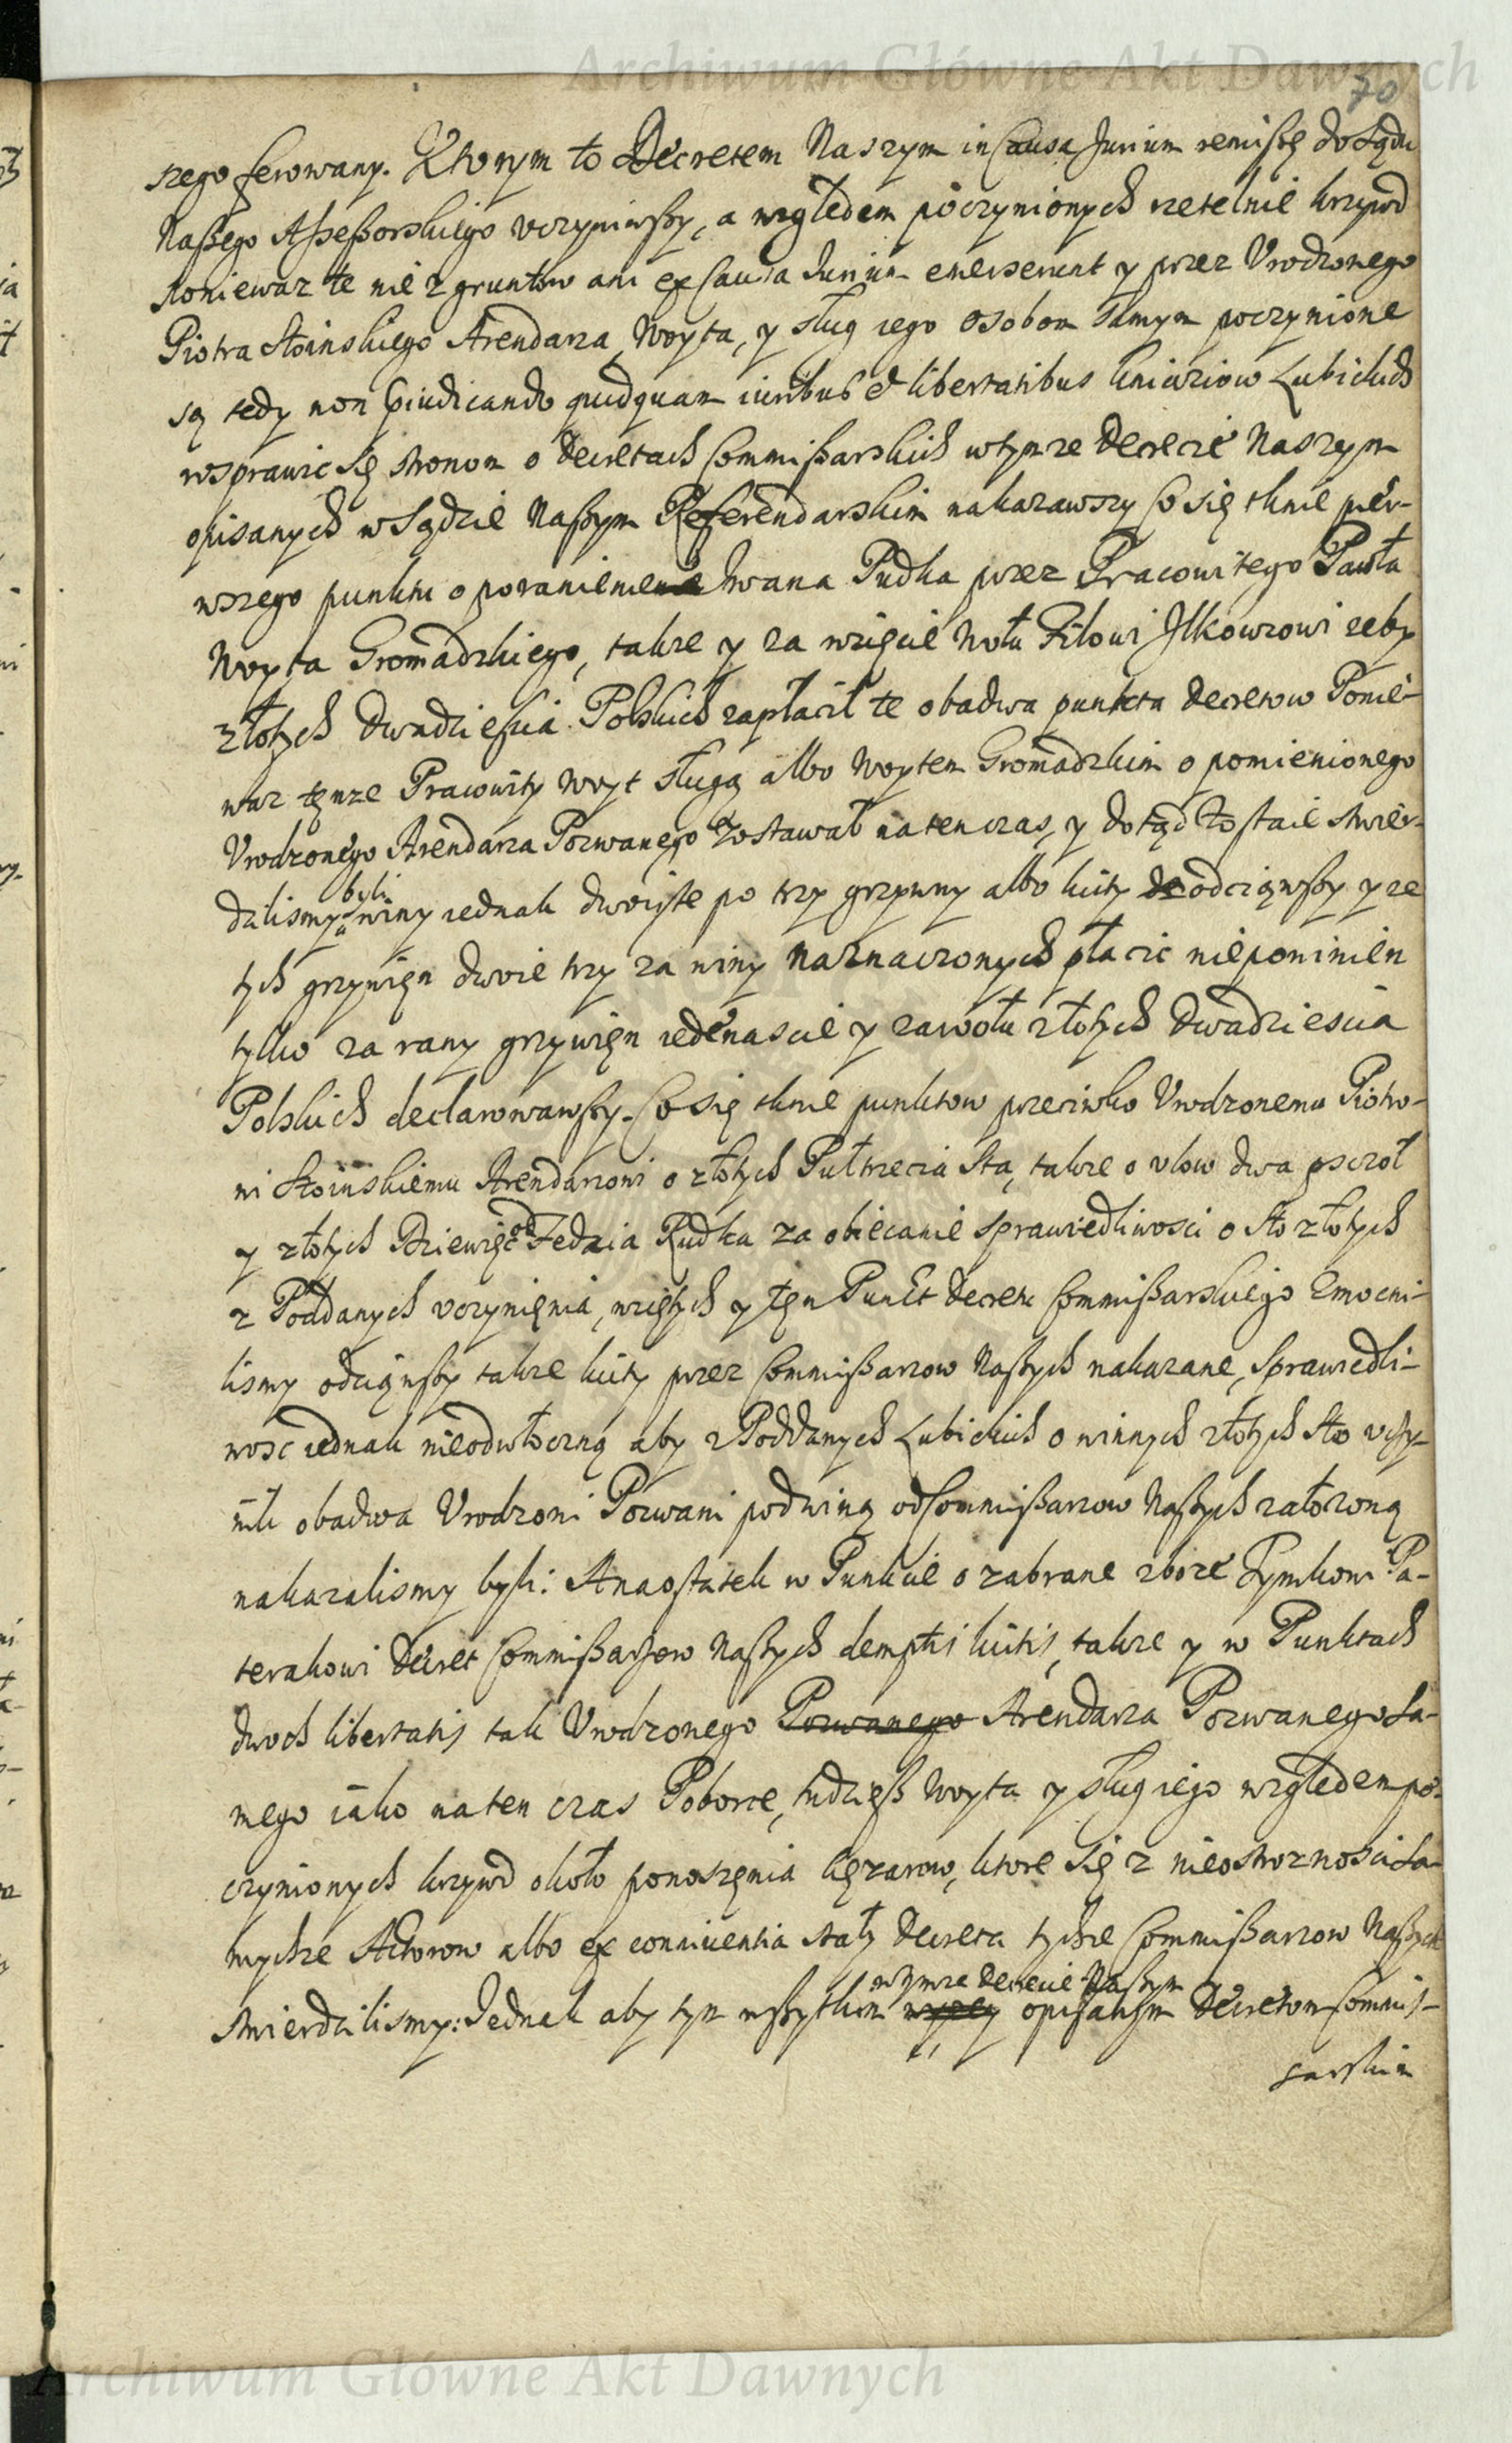 Archiwum Główne Akt Dawnych
70
szego ferowany. Ktorym to Decretem Naszym in Causa Jurium remissę do Sądu
Naßego Aßeßorskiego vczyniwßy, a względem poczynionych rzetelnie krzywd
poniewaz te nie z gruntow ani ex Causa Jurium emerserunt y przez Vrodzonego
Piotra Stoinskiego Arendarza Woyta, y sług iego osobom samym poczynione
są tedy non p̃iudicando quidquam iuribus et libertatibus kniaziow Łubickich
rosprawic się stronom o decretach Commißarskich wtymze Decrecie Naszym
opisanych w Sądzie Naßym Referendarskim nakazawszy Co się tknie pier-
wszego punktu o poranienie Iwana Pudka przez Pracowitego Pawła
Woyta Gromadzkiego, takze y za wzięcie Wołu Filowi Jlkowzowi zeby
złotych dwadziescia Polskich zapłacił te obadwa punkta decretow Ponie-
waz tęnze Pracowity Woyt sługą albo Woytem Gromadzkim o pomienionego
Vrodzonego Arendarza Pozwanego zostawał natenczas, y dotąd zostaie stwier-
dzilismy byli winy iednak dwoiste po trzy grzywny albo luity odciąwßy y ze
tych grzywięn dwoie trzy za winy naznaczonych płacic niepowinien
tylko za rany grzywięn iedenascie y zawołu złotych dwadziescia
Polskich declarowawßy. Co się tknie punktow przeciwko Vrodzonemu Piotro-
wi Stoinskiemu Arendarzowi o złotych Pułtrzecia sta, takze o vlow dwa pszczoł
y złotych Dziewięc od Fedzia Rudka za obiecanie sprawiedliwosci o sto złotych
z Poddanych vczynięnia, wziętych y tęn Punkt decretu Commißarskiego Zmocni-
lismy odciąwßy takze luity przez Commißarzow Naßych nakazane, Sprawiedli-
wosc iednak nieodwłoczną aby z Poddanych Łubickich o winnych złotych sto vczy-
nili obadwa Vrodzoni Pozwani pod winą od Commißarzow Naßych załozoną
nakazalismy byli: Anaostatek w Punkcie o zabrane zboze Tymkowi Pa-
terakowi Decret Commißarzow Naßych demptis luitis, takze y w Punktach
dwoch libertatis tak Vrodzonego Pozwanego Arendarza Pozwanego sa-
mego iako na ten czas Poborcę, tudzięß Woyta y sług iego względem po-
czynionych krzywd około ponoszęnia cięzarow, ktore się z nieostroznosci sa-
mychze Aktorow albo ex conniventia stały decreta tychze Commißarzow Naßych
stwierdzilismy: Jednak aby tym wßytkim wtymze Decrecie Naßym opisanym Decretom Commis-
sarskim
Archiwum Główne Akt Dawnych